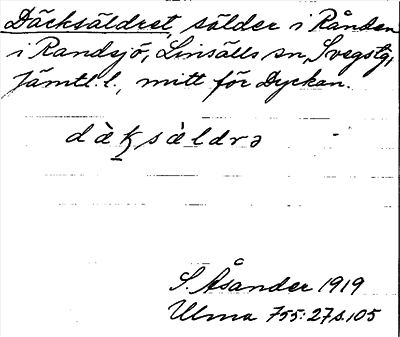 Däcksäldret, sälder i Rånden
i Randsjö, Linsälls sn, Svegstg,
Jämtl. l., mitt för Dyckan.
dàꞣsàldrə
S. Åsander 1919
Ulma 755:27 s. 105